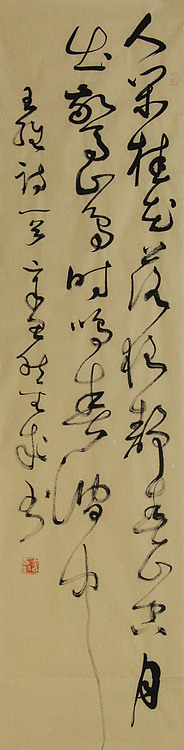 人闲桂花落夜静春山空月
出惊山鸟时鸣春涧中
王维诗一首辛丑秋书